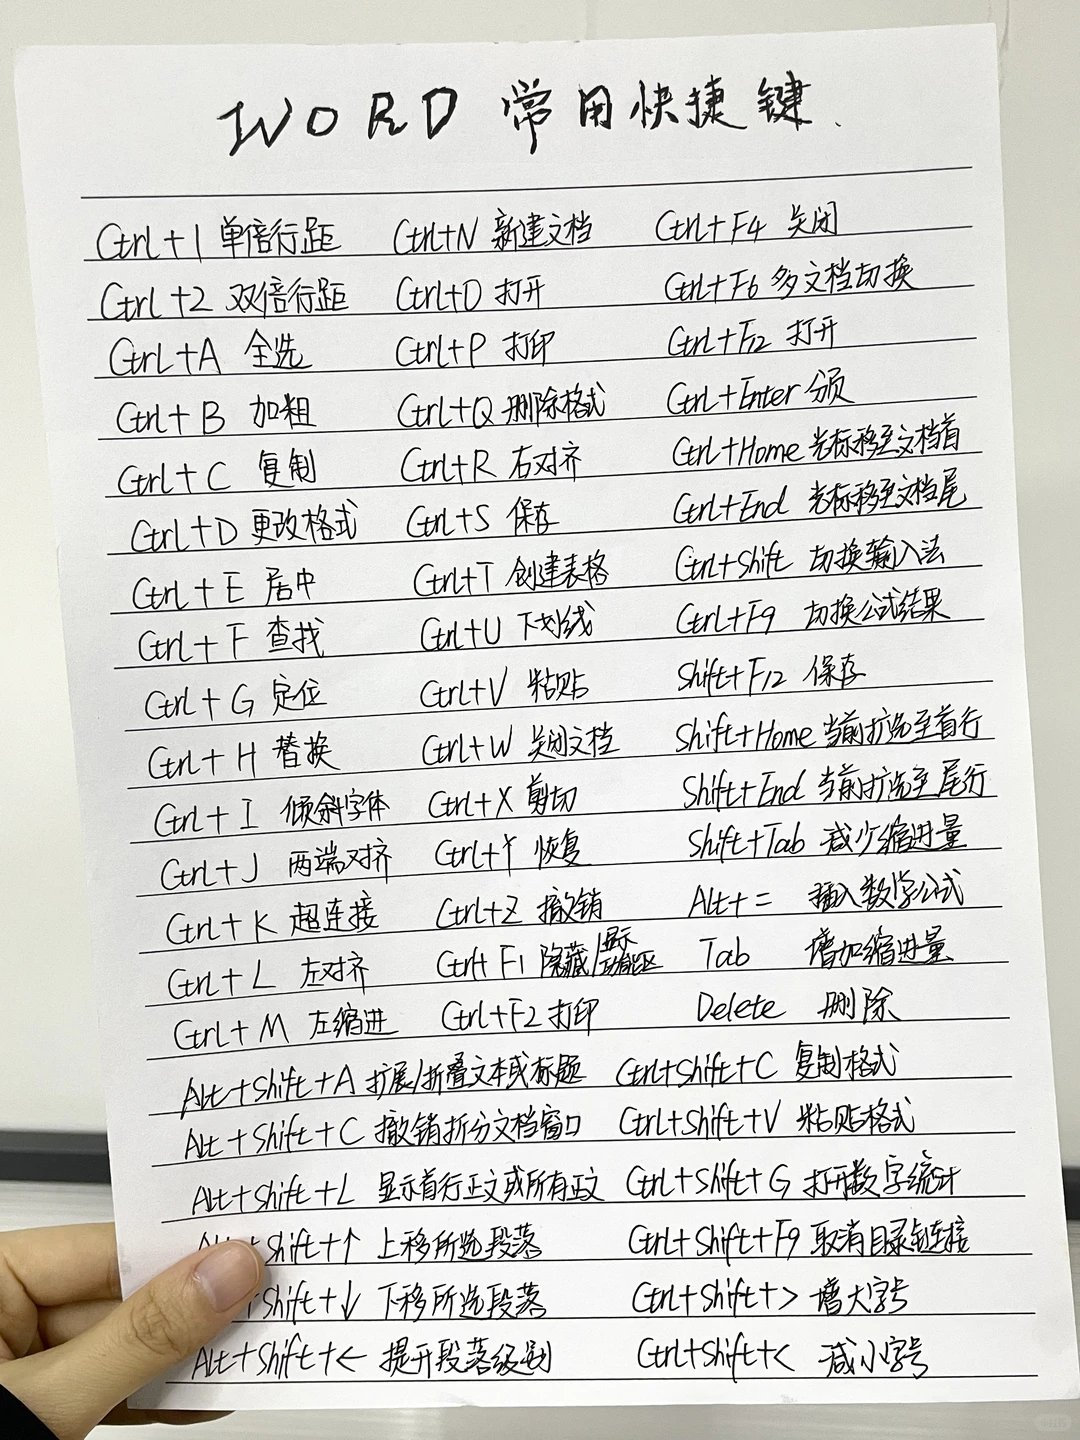 WORD 常用快捷键
Ctrl+1 单倍行距 Ctrl+N 新建文档 Ctrl+F4 关闭
Ctrl+2 双倍行距 Ctrl+O 打开 Ctrl+F6 多文档切换
Ctrl+A 全选 Ctrl+P 打印 Ctrl+F12 打开
Ctrl+B 加粗 Ctrl+Q 删除格式 Ctrl+Enter 分页
Ctrl+C 复制 Ctrl+R 右对齐 Ctrl+Home 光标移至文档首
Ctrl+D 更改格式 Ctrl+S 保存 Ctrl+End 光标移至文档尾
Ctrl+E 居中 Ctrl+T 创建表格 Ctrl+Shift 切换输入法
Ctrl+F 查找 Ctrl+U 下划线 Ctrl+F9 切换公式结果
Ctrl+G 定位 Ctrl+V 粘贴 Shift+F12 保存
Ctrl+H 替换 Ctrl+W 关闭文档 Shift+Home 当前扩选至首行
Ctrl+I 倾斜字体 Ctrl+X 剪切 Shift+End 当前扩选至尾行
Ctrl+J 两端对齐 Ctrl+Y 恢复 Shift+Tab 减少缩进量
Ctrl+K 超连接 Ctrl+Z 撤销 Alt+= 插入数学公式
Ctrl+L 左对齐 Ctrl+F1 隐藏/显示功能区 Tab 增加缩进量
Ctrl+M 左缩进 Ctrl+F2 打印 Delete 删除
Alt+Shift+A 扩展/折叠文本或标题 Ctrl+Shift+C 复制格式
Alt+Shift+C 撤销拆分文档窗口 Ctrl+Shift+V 粘贴格式
Alt+Shift+L 显示首行正文或所有正文 Ctrl+Shift+G 打开数字统计
+Shift+↑ 上移所选段落 Ctrl+Shift+F9 取消目录链接
+Shift+↓ 下移所选段落 Ctrl+Shift+> 增大字号
Alt+Shift+← 提升段落级别 Ctrl+Shift+< 减小字号